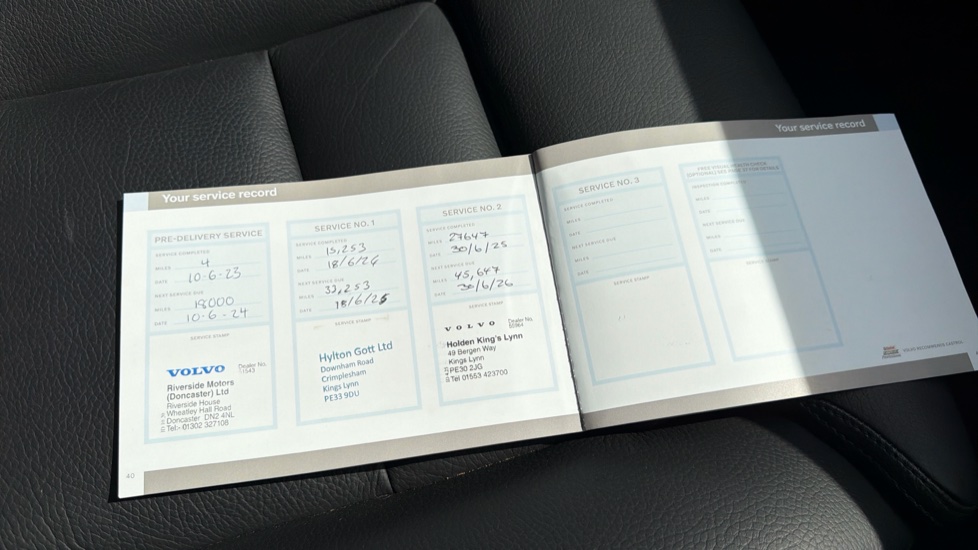 Your service record
PRE-DELIVERY SERVICE
SERVICE COMPLETED
MILES 4
DATE 10-6-23
NEXT SERVICE DUE
MILES 18000
DATE 10-6-24
SERVICE STAMP
VOLVO
Dealer No.
Riverside Motors
(Doncaster) Ltd
Riverside House
Wheatley Hall Road
Doncaster DN2 4NL
Tel:- 01302 327108
40
SERVICE NO. 1
SERVICE COMPLETED
MILES 15,253
DATE 18/6/24
NEXT SERVICE DUE
MILES 33,253
DATE 18/6/25
SERVICE STAMP
Hylton Gott Ltd
Downham Road
Crimplesham
Kings Lynn
PE33 9DU
SERVICE NO. 2
SERVICE COMPLETED
MILES 27647
DATE 30/6/25
NEXT SERVICE DUE
MILES 45,647
DATE 30/6/26
SERVICE STAMP
VOLVO
Dealer No.
Holden King's Lynn
49 Bergen Way
Kings Lynn
PE30 2JG
Tel 01553 423700
Your service record
SERVICE NO. 3
SERVICE COMPLETED
MILES
DATE
NEXT SERVICE DUE
MILES
DATE
SERVICE STAMP
FREE VISUAL HEALTH CHECK
INSPECTION COMPLETED
MILES
DATE
NEXT SERVICE DUE
MILES
DATE
SERVICE STAMP
VOLVO RECOMMENDS CASTROL